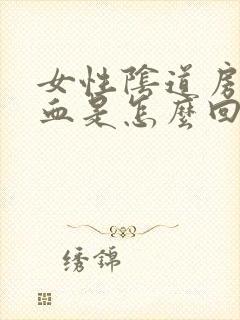 女性陰道房
血是怎麼回
绣錦